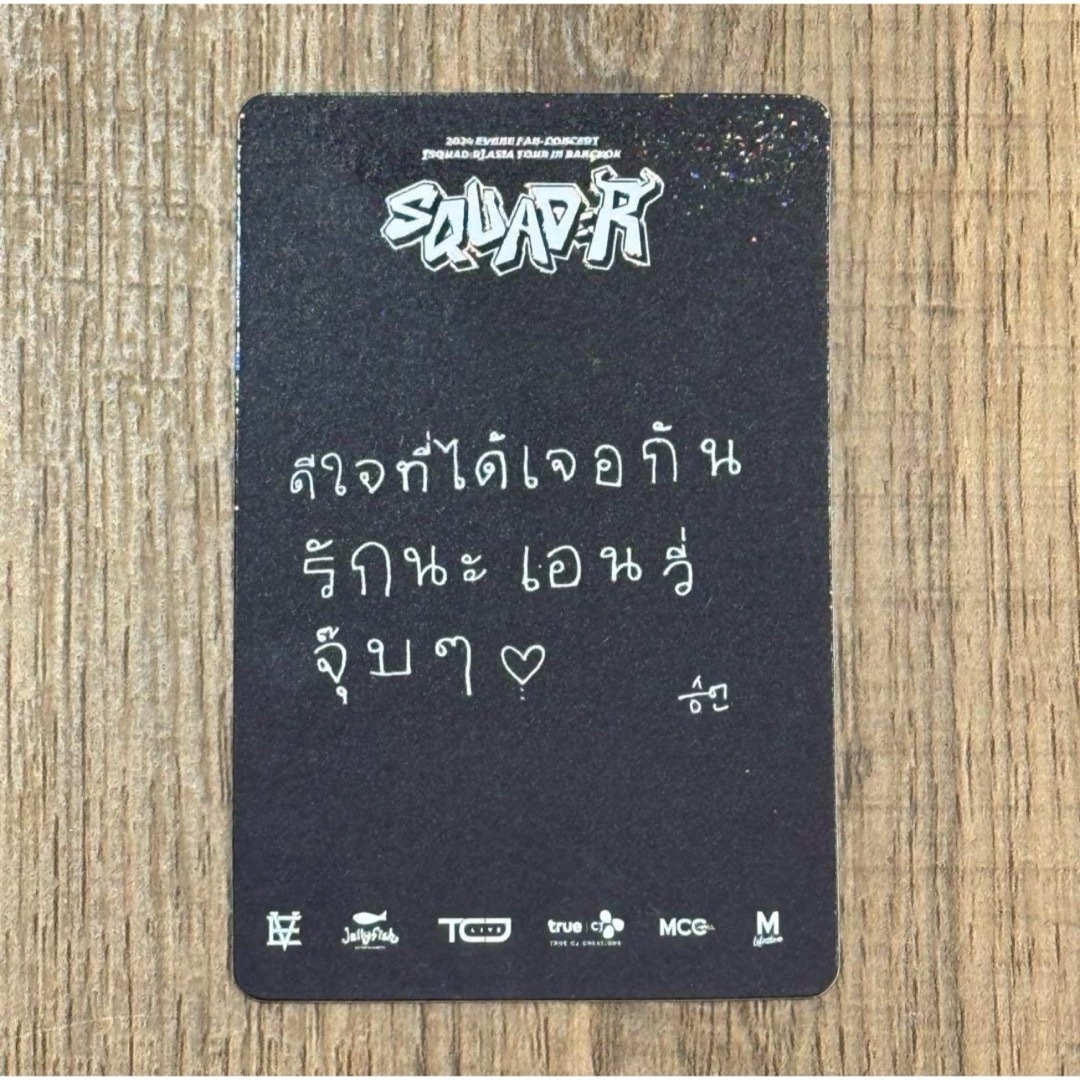 2024 EVNNE FAN-CONCERT
[SQUAD:R] ASIA TOUR IN BANGKOK
SQUAD:R
ดีใจที่ได้เจอกัน
รักนะ เอนวี่
จุ๊บๆ ♡
Jellyfish ENTERTAINMENT TCJ LIVE true CJ MCC M
TRUE CJ CREATIONS